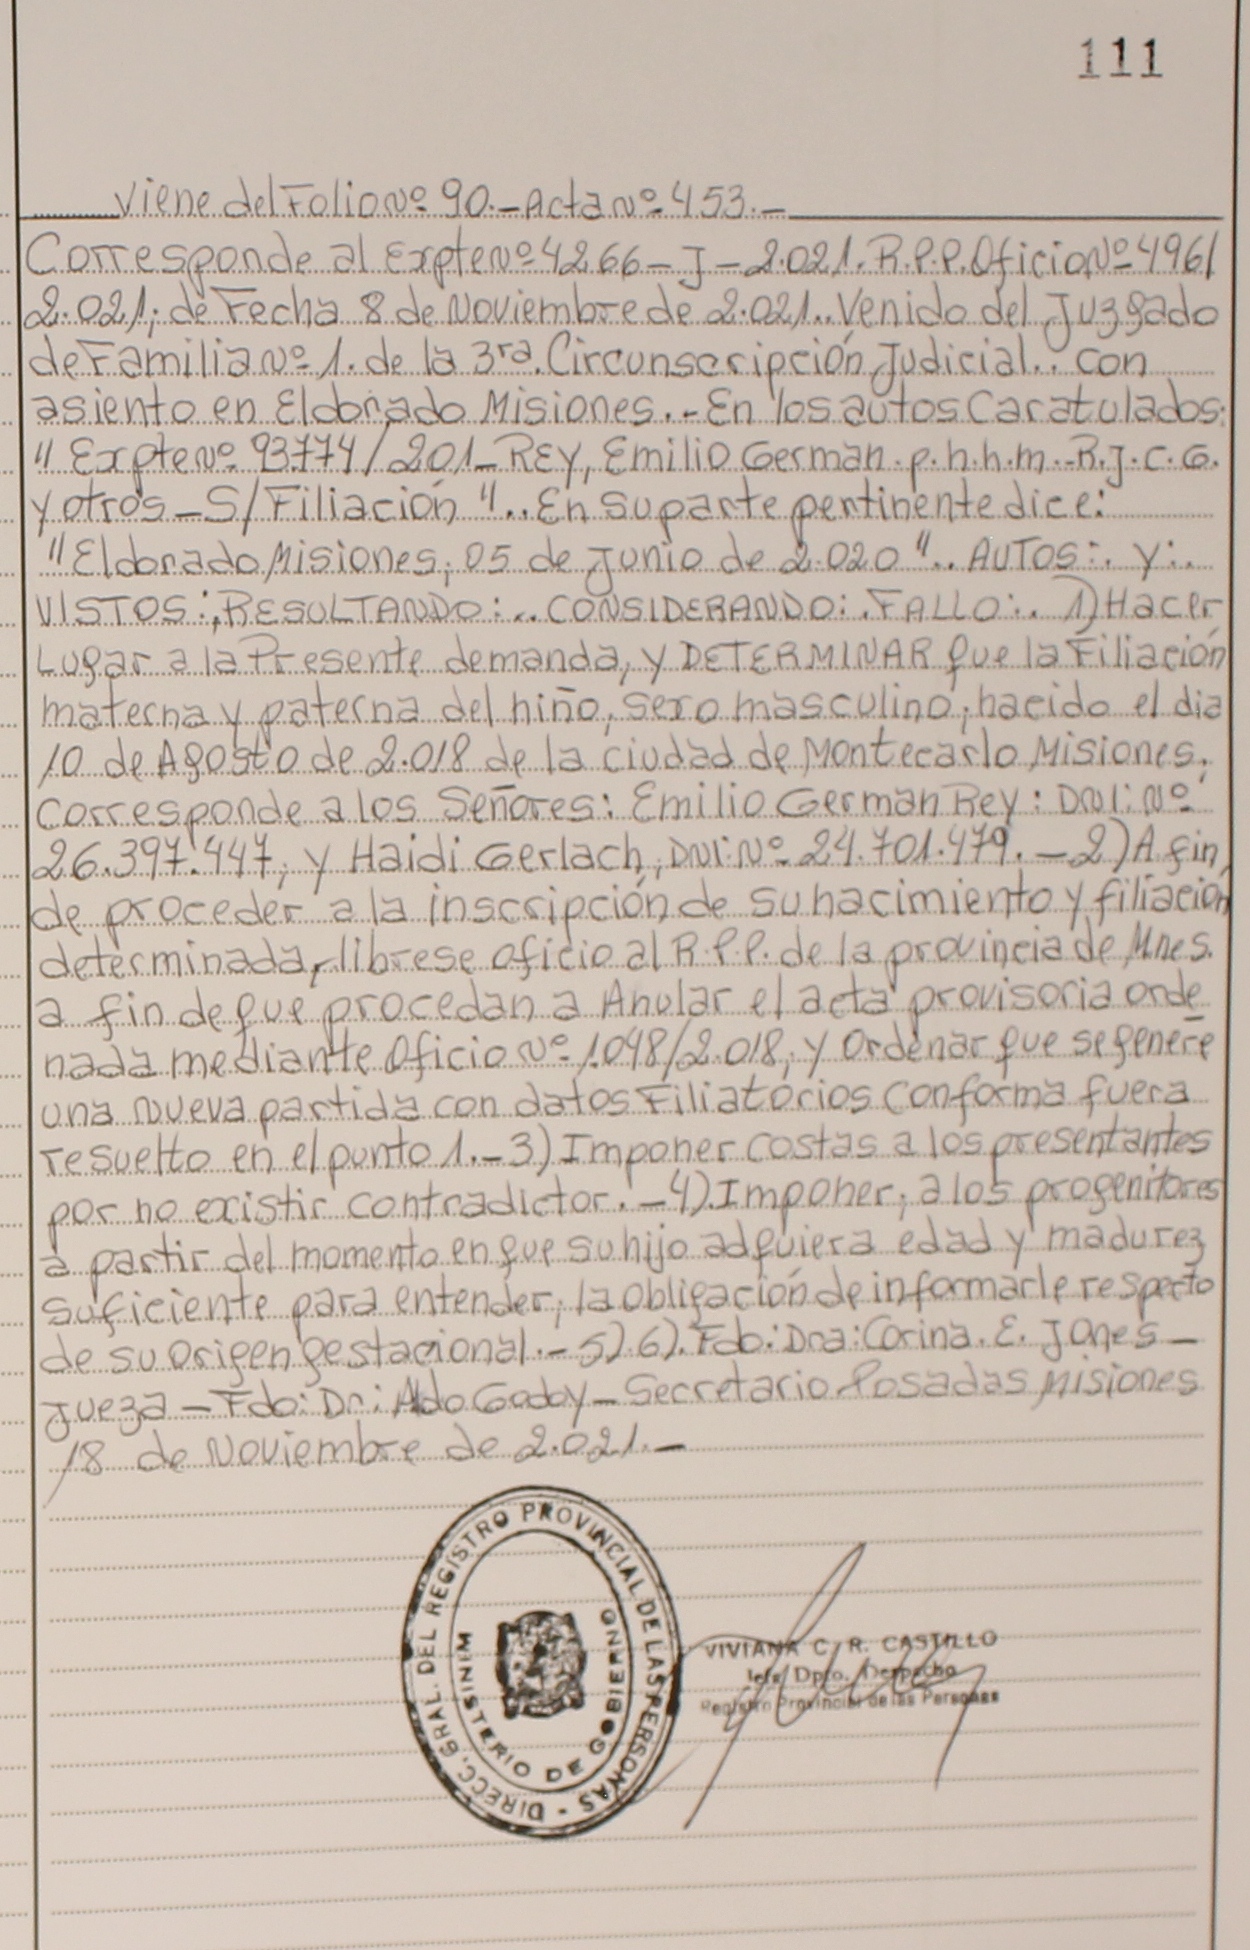 111
Viene del Folio Nº 90.- Acta Nº 453.-
Corresponde al Expte Nº 4266-J-2.021. R.P.P. Oficio Nº 496/
2.021; de Fecha 8 de Noviembre de 2.021.. Venido del Juzgado
de Familia Nº 1. de la 3ra. Circunscripción Judicial.. con
asiento en Eldorado Misiones.- En los autos Caratulados:
" Expte Nº 93774/201_ REY, Emilio German. p.h.h.m.-R.J.C.G.
y otros - S/Filiación ".. En su parte pertinente dice:
"Eldorado, Misiones, 05 de Junio de 2.020".. AUTOS:. y:.
VISTOS:, RESULTANDO:.. CONSIDERANDO:. FALLO:.. 1) Hacer
Lugar a la Presente demanda, y DETERMINAR que la Filiación
materna y paterna del niño, sexo masculino, nacido el dia
10 de Agosto de 2.018 de la ciudad de Montecarlo Misiones.
Corresponde a los Señores: Emilio German Rey: DNI: Nº
26.397.447, y Haidi Gerlach, DNI: Nº 24.701.479. - 2) A fin
de proceder a la inscripción de su nacimiento y filiación
determinada, librese oficio al R.P.P. de la provincia de Mnes.
a fin de que procedan a Anular el acta provisoria orde
nada mediante Oficio Nº 1.048/2.018, y Ordenar que se genere
una nueva partida con datos Filiatórios conforma fuera
resuelto en el punto 1.- 3) Imponer costas a los presentantes
por no existir contradictor. - 4). Imponer, a los progenitores
a partir del momento en que su hijo adquiera edad y madurez
suficiente para entender, la obligación de informarle respecto
de su origen gestacional.- 5) 6). Fdo: Dra: Corina. E. Jones -
Jueza - Fdo: Dr: Aldo Godoy - Secretario Posadas Misiones
18 de Noviembre de 2.021.-
DIRECC. GRAL. DEL REGISTRO PROVINCIAL DE LAS PERSONAS -
MINISTERIO DE GOBIERNO
VIVIANA C. R. CASTILLO
Jefe Dpto. Despacho
Registro Provincial de las Personas